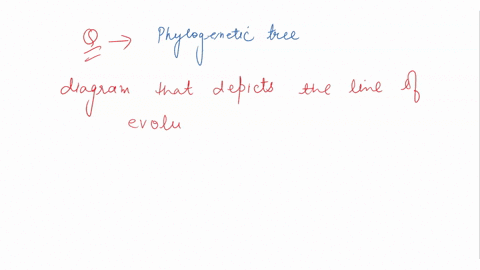 Q → Phylogenetic tree
diagram that depicts the line of
evolu